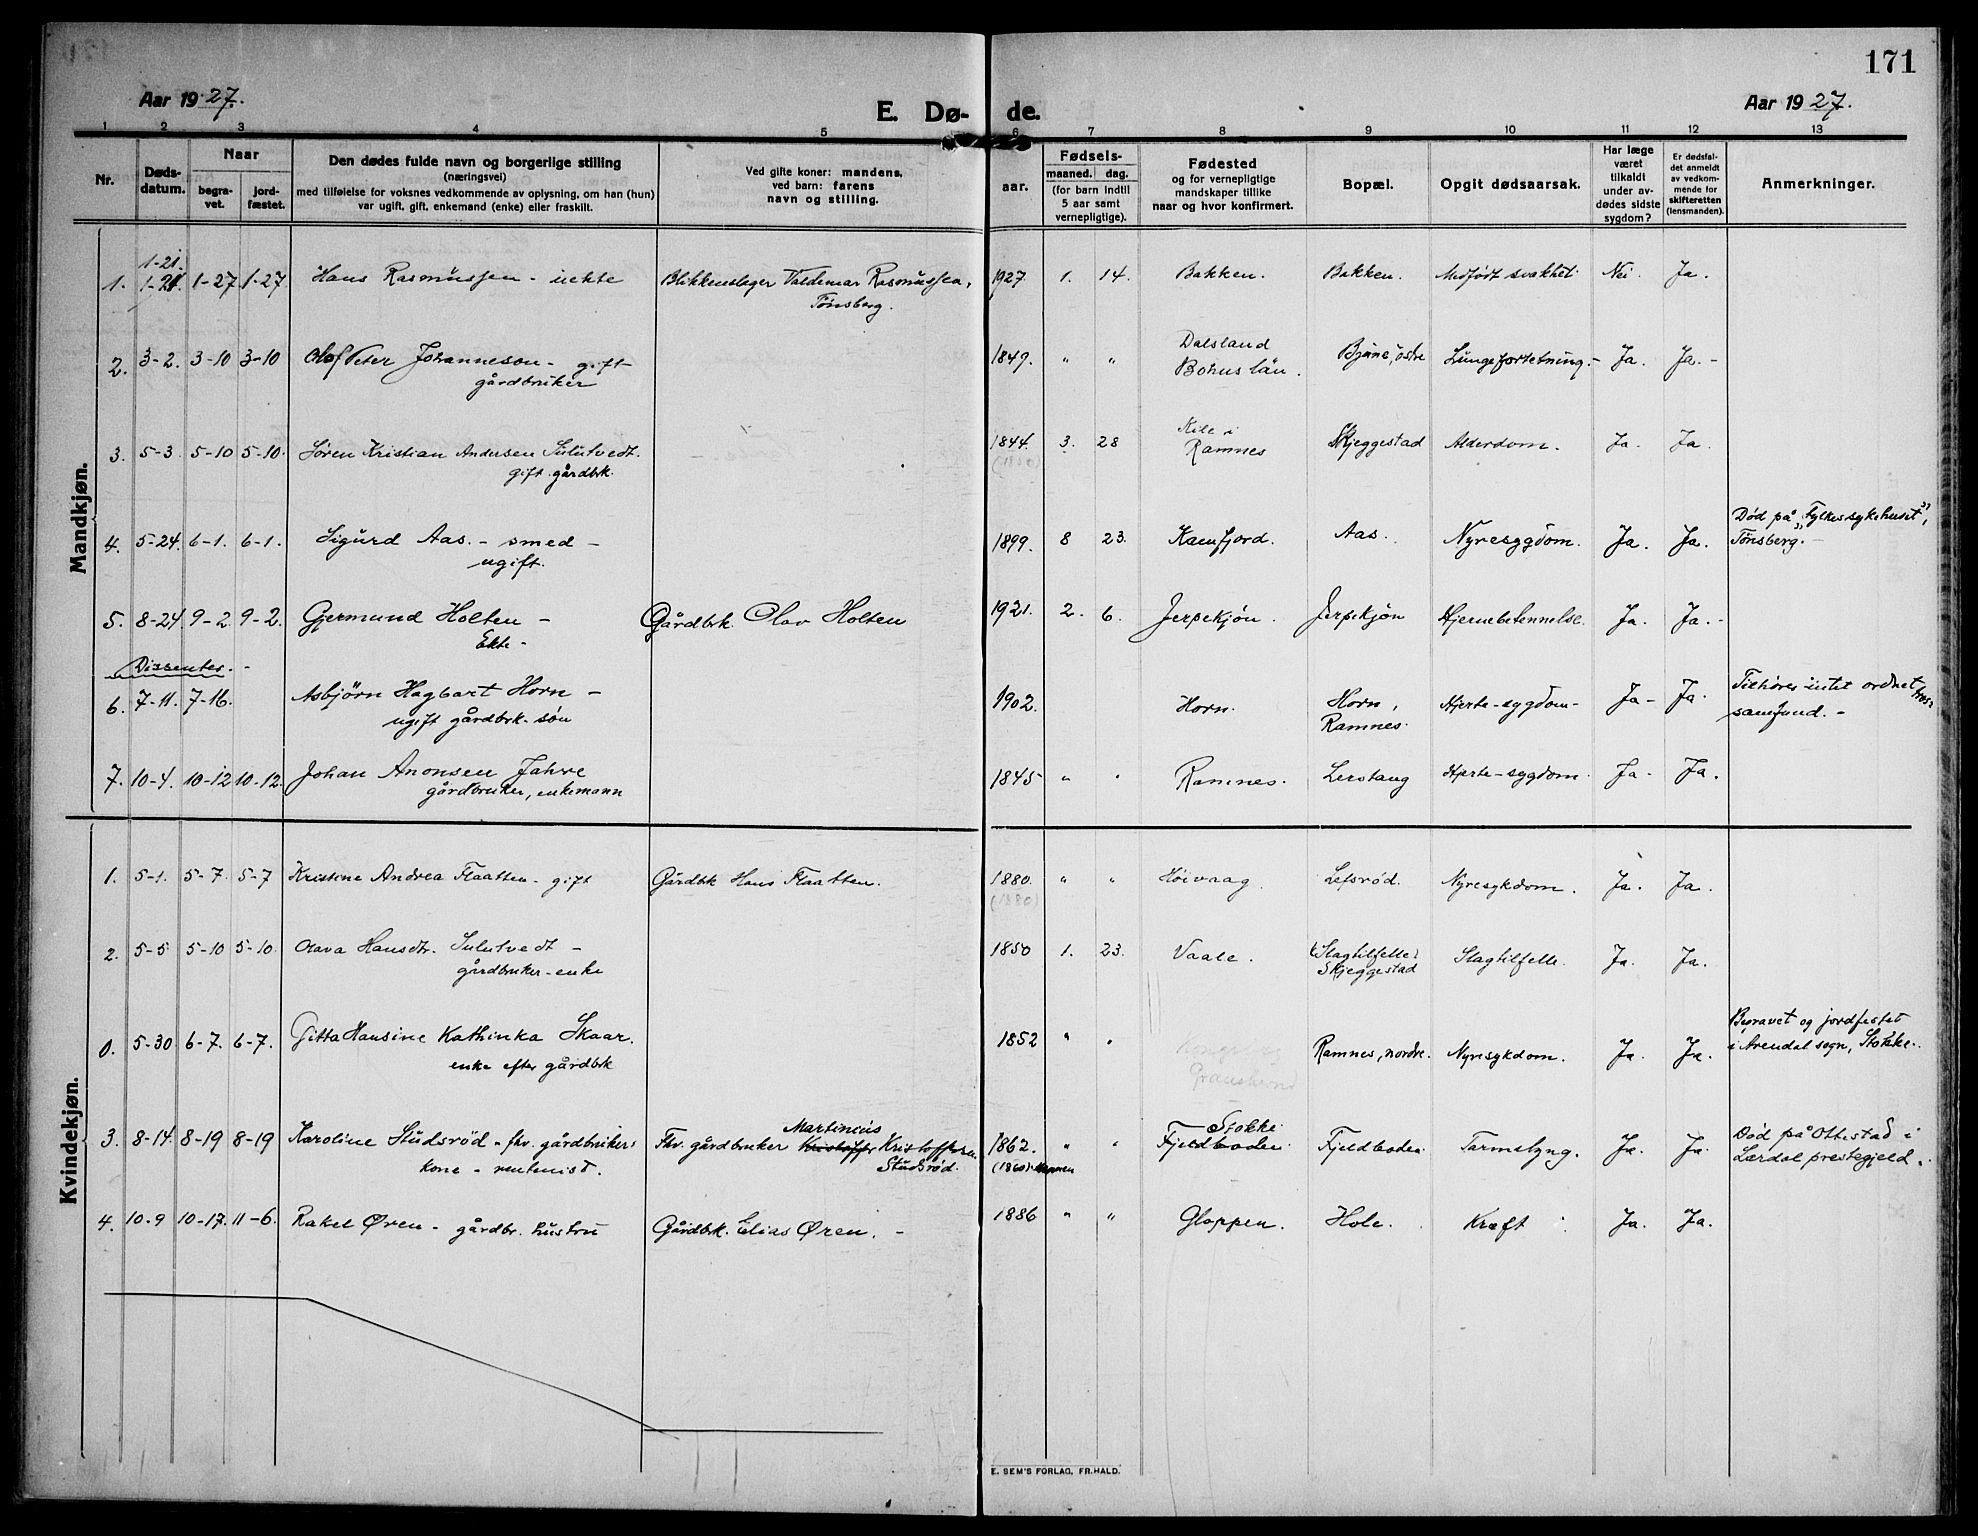 171
Aar 1927.
E. Dø- de.
Aar 1927.
1 2 3 4 5 6 7 8 9 10 11 12 13
Nr.
Døds-
datum.
Naar
begra-
vet.
jord-
fæstet.
Den dødes fulde navn og borgerlige stilling
(næringsvei)
med tilføielse for voksnes vedkommende av oplysning, om han (hun)
var ugift, gift, enkemand (enke) eller fraskilt.
Ved gifte koner: mandens,
ved barn: farens
navn og stilling.
Fødsels-
aar.
maaned. dag.
(for barn indtil
5 aar samt
vernepligtige).
Fødested
og for vernepligtige
mandskaper tillike
naar og hvor konfirmert.
Bopæl.
Opgit dødsaarsak.
Har læge
været
tilkaldt
under av-
dødes sidste
sygdom?
Er dødsfal-
det anmeldt
av vedkom-
mende for
skifteretten
(lensmanden).
Anmerkninger.
Mandkjøn.
1-21.
1. 1-21. 1-27 1-27 Hans Rasmussen - uekte Blikkenslager Valdemar Rasmussen, 1927. 1. 14. Bakken. Bakken. Medfødt svakhet. Nei. Ja.
Tønsberg.
2. 3-2. 3-10 3-10 Olof Peter Johanneson - gift 1849. " " Dalsland Bjune, østre Lungefortetning. - Ja. Ja. -
gårdbruker Bohus län.
3. 5-3 5-10 5-10. Søren Kristian Andersen Sulutvedt. 1844. 3. 28 Kile i Skjeggestad Alderdom. Ja. Ja.
gift gårdbk. (1850) Ramnes
4. 5-24. 6-1. 6-1. Sigurd Aas. - smed - 1899. 8 23. Kamfjord. Aas. Nyresygdom. Ja. Ja. Død på "Fylkessykehuset",
ugift. Tønsberg. -
5. 8-24 9-2. 9-2. Gjermund Holten - Gårdbrk. Olav Holten 1921. 2. 6. Jerpekjøn. Jerpekjøn Hjernebetennelse. Ja. Ja. -
Ekte -
Dissenter. -
6. 7-11. 7-16. Asbjørn Hagbart Horn - 1902. Horn. Horn, Hjerte-sygdom - Ja - Ja. Tilhører intet ordnet tros-
ugift gårdbrk. søn Ramnes. samfund. -
7. 10-4. 10-12 10-12. Johan Anonsen Jahre 1845 " " Ramnes. Lerstang Hjerte-sygdom. Ja. Ja.
gårdbruker, enkemann
Kvindekjøn.
1. 5-1. 5-7. 5-7 Kristine Andrea Flaatten - gift Gårdbk Hans Flaatten. 1880. " " Høivaag. Lefsrød. Nyresykdom. Ja. Ja.
(1880)
2. 5-5 5-10 5-10. Olava Hansdtr. Sulutvedt - 1850 1. 23. Vaale. (Slagtilfelle) Slagtilfelle. Ja. Ja.
gårdbruker-enke Skjeggestad
0. 5-30 6-7. 6-7. Gitta Hansine Kathinka Skaar. 1852 " " Ramnes, nordre. Nyresykdom. Ja. Ja. Begravet og jordfestet
enke efter gårdbrk i Arendal sogn, Stokke.
3. 8-14. 8-19 8-19 Karoline Studsrød - fhv. gårdbruker: Fhv. gårdbruker Martinius Kristoffer Kristoffersen 1862. " " Stokke. Fjeldboden. Tarmslyng. Ja. Ja. Død på Ottestad i
kone - rentenist. Studsrød. (1860) Fjeldboden Lærdal prestegjeld.
4. 10-9 10-17. 11-6. Rakel Øren - gårdbr. hustru Gårdbrk. Elias Øren. - 1886 " " Gloppen. Hole. Kræft Ja. Ja.
E. SEM'S FORLAG, FR.HALD.